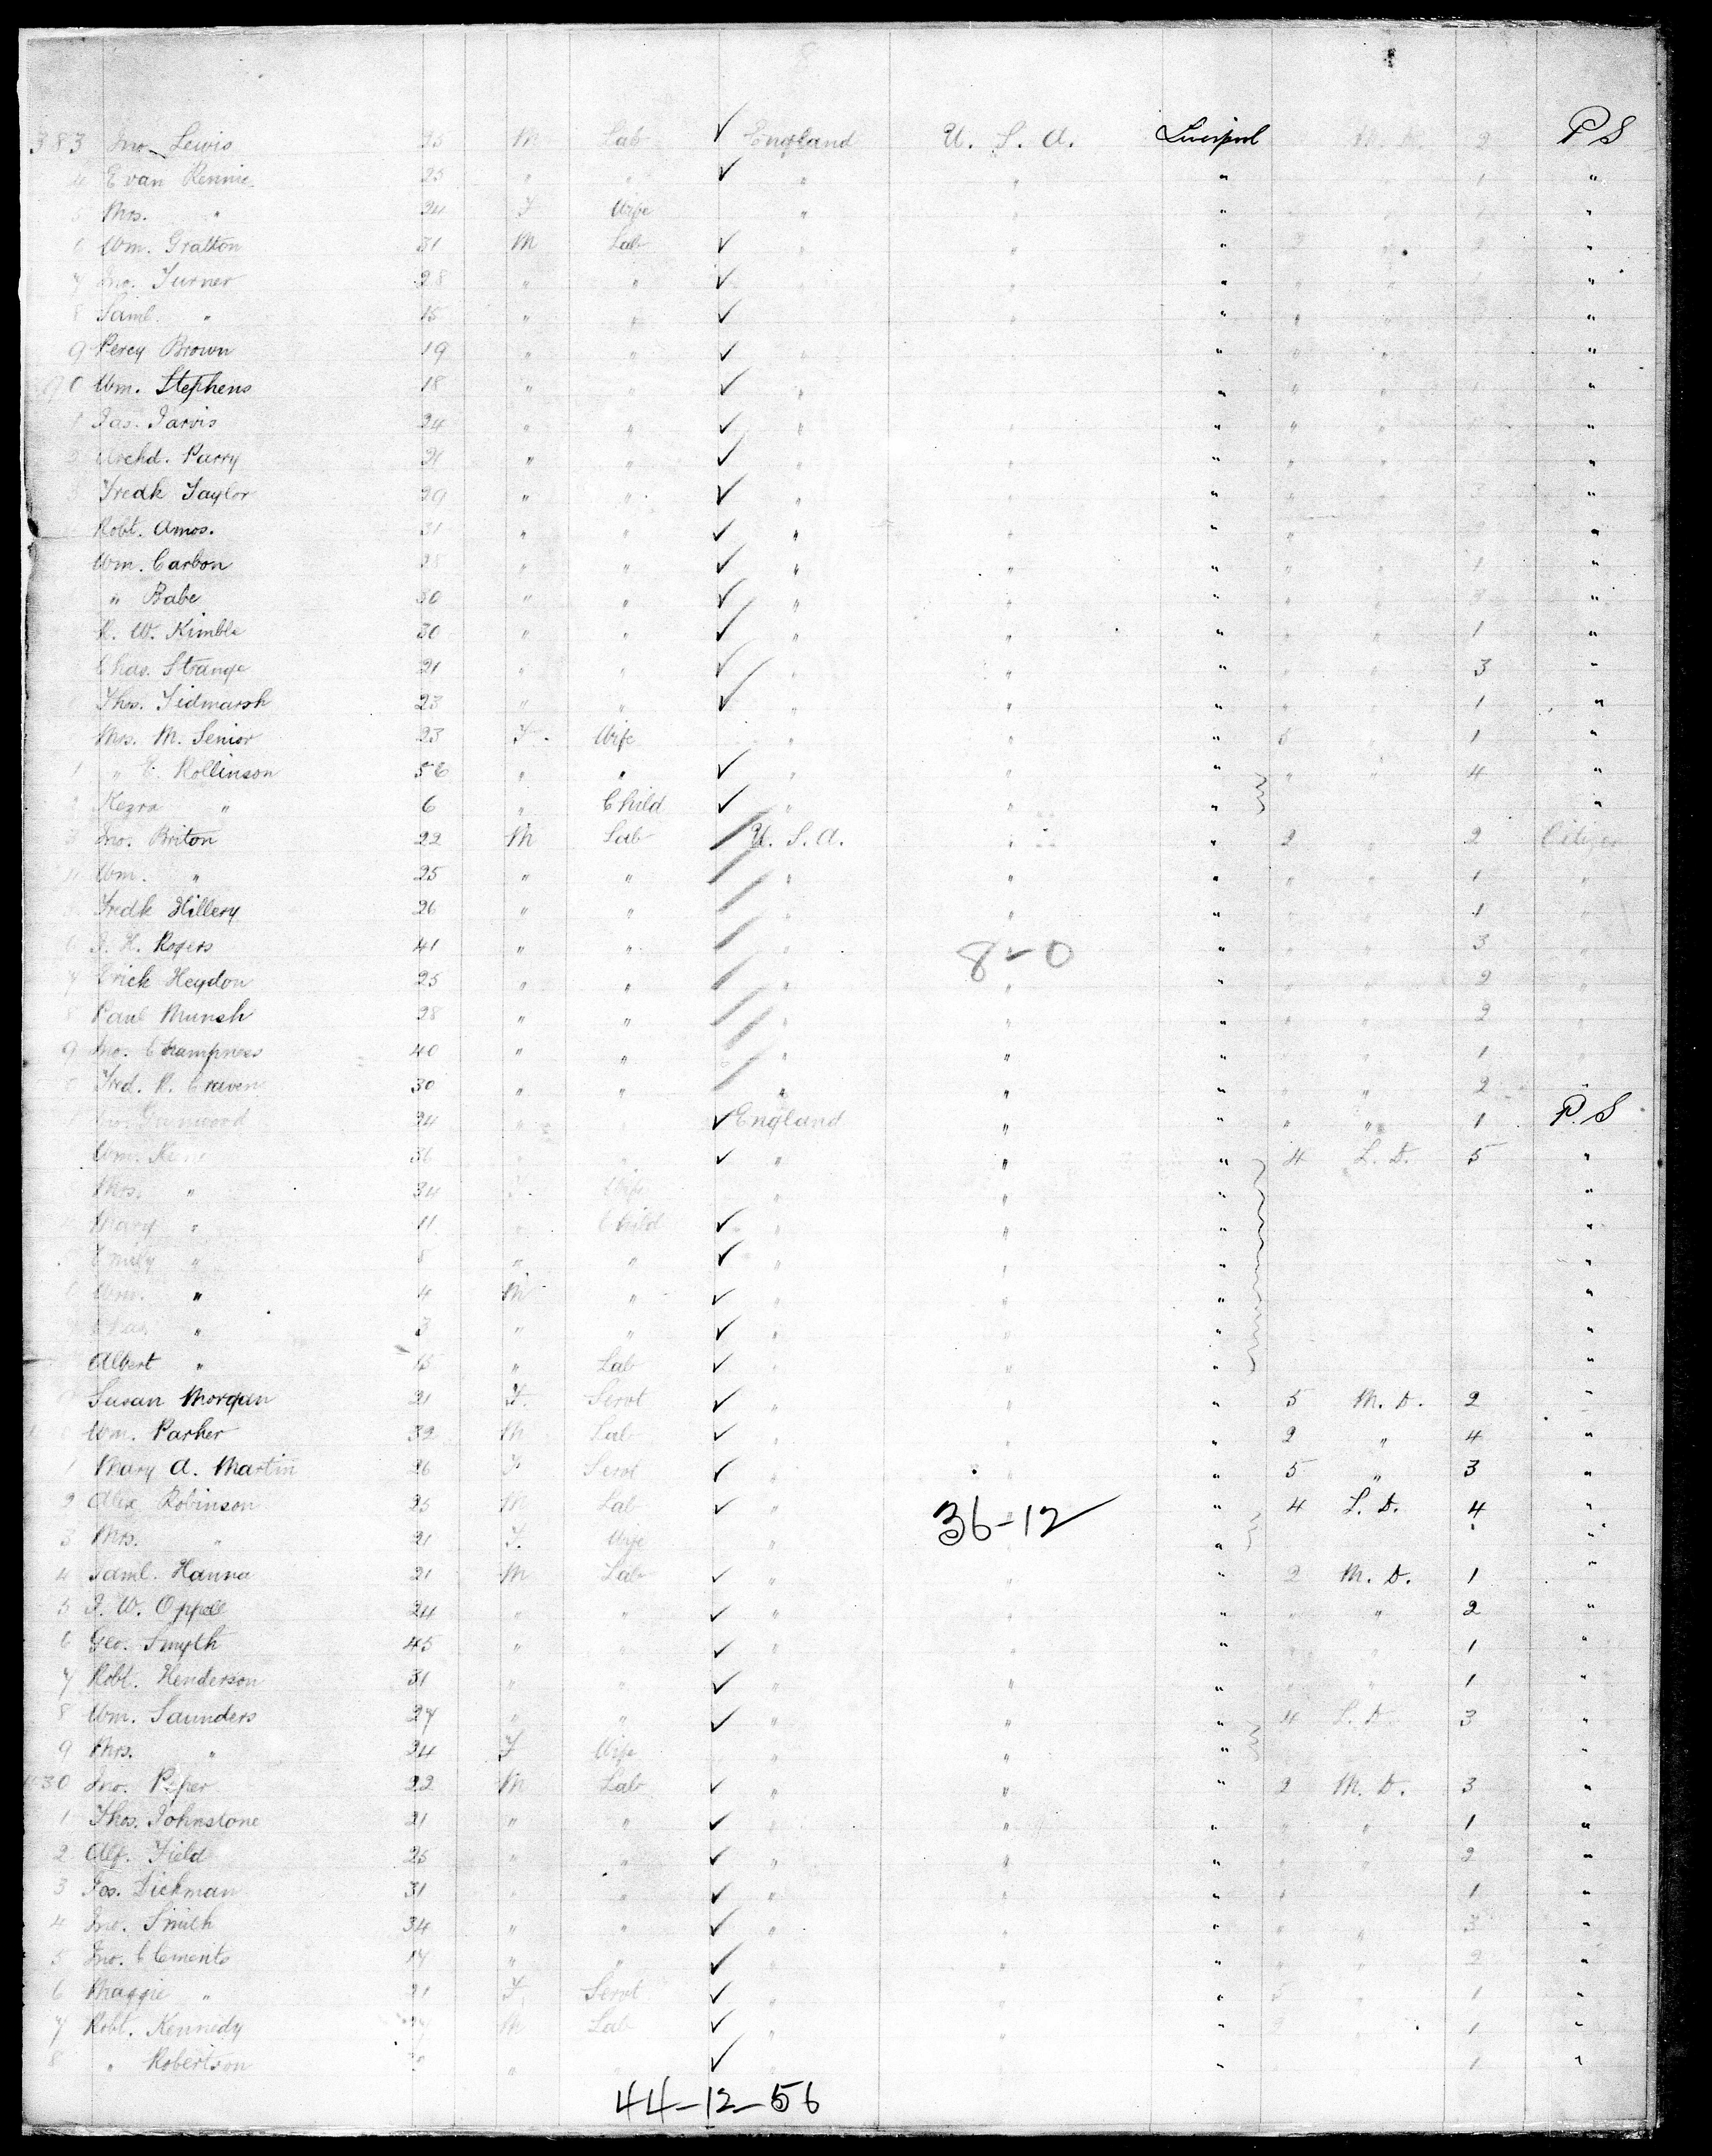 8
383 Jno. Lewis 25 M Lab ✓ England U. S. A. Liverpool M. D. 2 P S
4 Evan Rennie 25 " " ✓ " " " 1 "
5 Mrs. " 24 F Wife " " " "
6 Wm. Gratton 31 M Lab ✓ " " " 2 "
7 Jno. Turner 28 " " ✓ " " " " " 1 "
8 Saml. " 15 " " ✓ " " " " "
9 Percy Brown 19 " " ✓ " " " " "
90 Wm. Stephens 18 " " ✓ " " " " 1 "
1 Jas. Jarvis 24 " " ✓ " " " " " "
2 Archd. Parry 21 " " ✓ " " " " "
3 Fredk Taylor 29 " " ✓ " " " " 3 "
Robt. Amos. 31 " " ✓ " " " " "
Wm. Carbon 28 " " ✓ " " " " " 1 "
" Babe 30 " " ✓ " " " " " "
W. Kimble 30 " " ✓ " " " " " 1 "
Chas. Strange 21 " " ✓ " " " " " 3 "
Thos. Tidmarsh 23 " " ✓ " " " " " 1 "
Mrs. M. Senior 23 F. Wife " " " 5 " 1 "
1 " E. Rollinson 56 " " ✓ " " " " " 4 "
2 Kezra " 6 " Child ✓ " " " "
3 Jno. Briton 22 M Lab / U. S. A. " " 2 " 2 Citizen
4 Wm. " 25 " " / " " " " " 1 "
5 Fredk Hillery 26 " " / " " " " " 1 "
6 J. H. Rogers 41 " " / " " " " 3 "
8-0
7 Erick Heydon 25 " " / " " " " " 2 "
8 Paul Munsh 28 " " / " " " " " 2 "
9 Jno. Champness 40 " " / " " " " " 1 "
0 Fred. R. Craven 30 " " / " " " " " 2 "
24 " " ✓ England " " " " 1 P. S
Wm. 36 " " ✓ " " " 4 L. D. 5 "
Mrs. " 34 F. Wife " " " "
Mary " 11 " Child ✓ " " " "
5 Emily " 8 " " ✓ " " " "
6 Wm. " 4 M " ✓ " " " "
7 Chas. " 3 " " ✓ " " " "
Albert " 15 " Lab ✓ " " " "
Susan Morgan 21 F. Servt ✓ " " " 5 M. D. 2 "
Wm. Parker 32 M Lab ✓ " " " 2 " 4 "
1 Mary A. Martin 26 F Servt ✓ " " " 5 " 3 "
2 Alex Robinson 25 M Lab ✓ " 36-12 " 4 L. D. 4 "
3 Mrs. " 21 F. Wife " " "
4 Saml. Hanna 21 M Lab ✓ " " " 2 M. D. 1 "
5 J. W. Oppell 24 " " ✓ " " " " " 2 "
6 Geo. Smyth 45 " " ✓ " " " 1 "
7 Robt. Henderson 31 " " ✓ " " " " 1 "
8 Wm. Saunders 27 " " ✓ " " " 4 L. D. 3 "
9 Mrs. " 24 F Wife " " " "
430 Jno. Piper 22 M Lab ✓ " " " 2 M. D. 3 "
1 Thos. Johnstone 21 " " ✓ " " " " " 1 "
2 Alf. Field 25 " " ✓ " " " " " 2 "
3 Jos. Dickman 31 " " ✓ " " " " 1 "
4 Jno. Smith 34 " " ✓ " " " " " 3 "
5 Jno. Clements 17 " " ✓ " " " " " 2 "
6 Maggie " 21 F Servt ✓ " " " 5 " 1 "
7 Robt. Kennedy M Lab ✓ " " " 2 " 1 "
8 " Robertson " ✓ " " 1 "
44-12-56